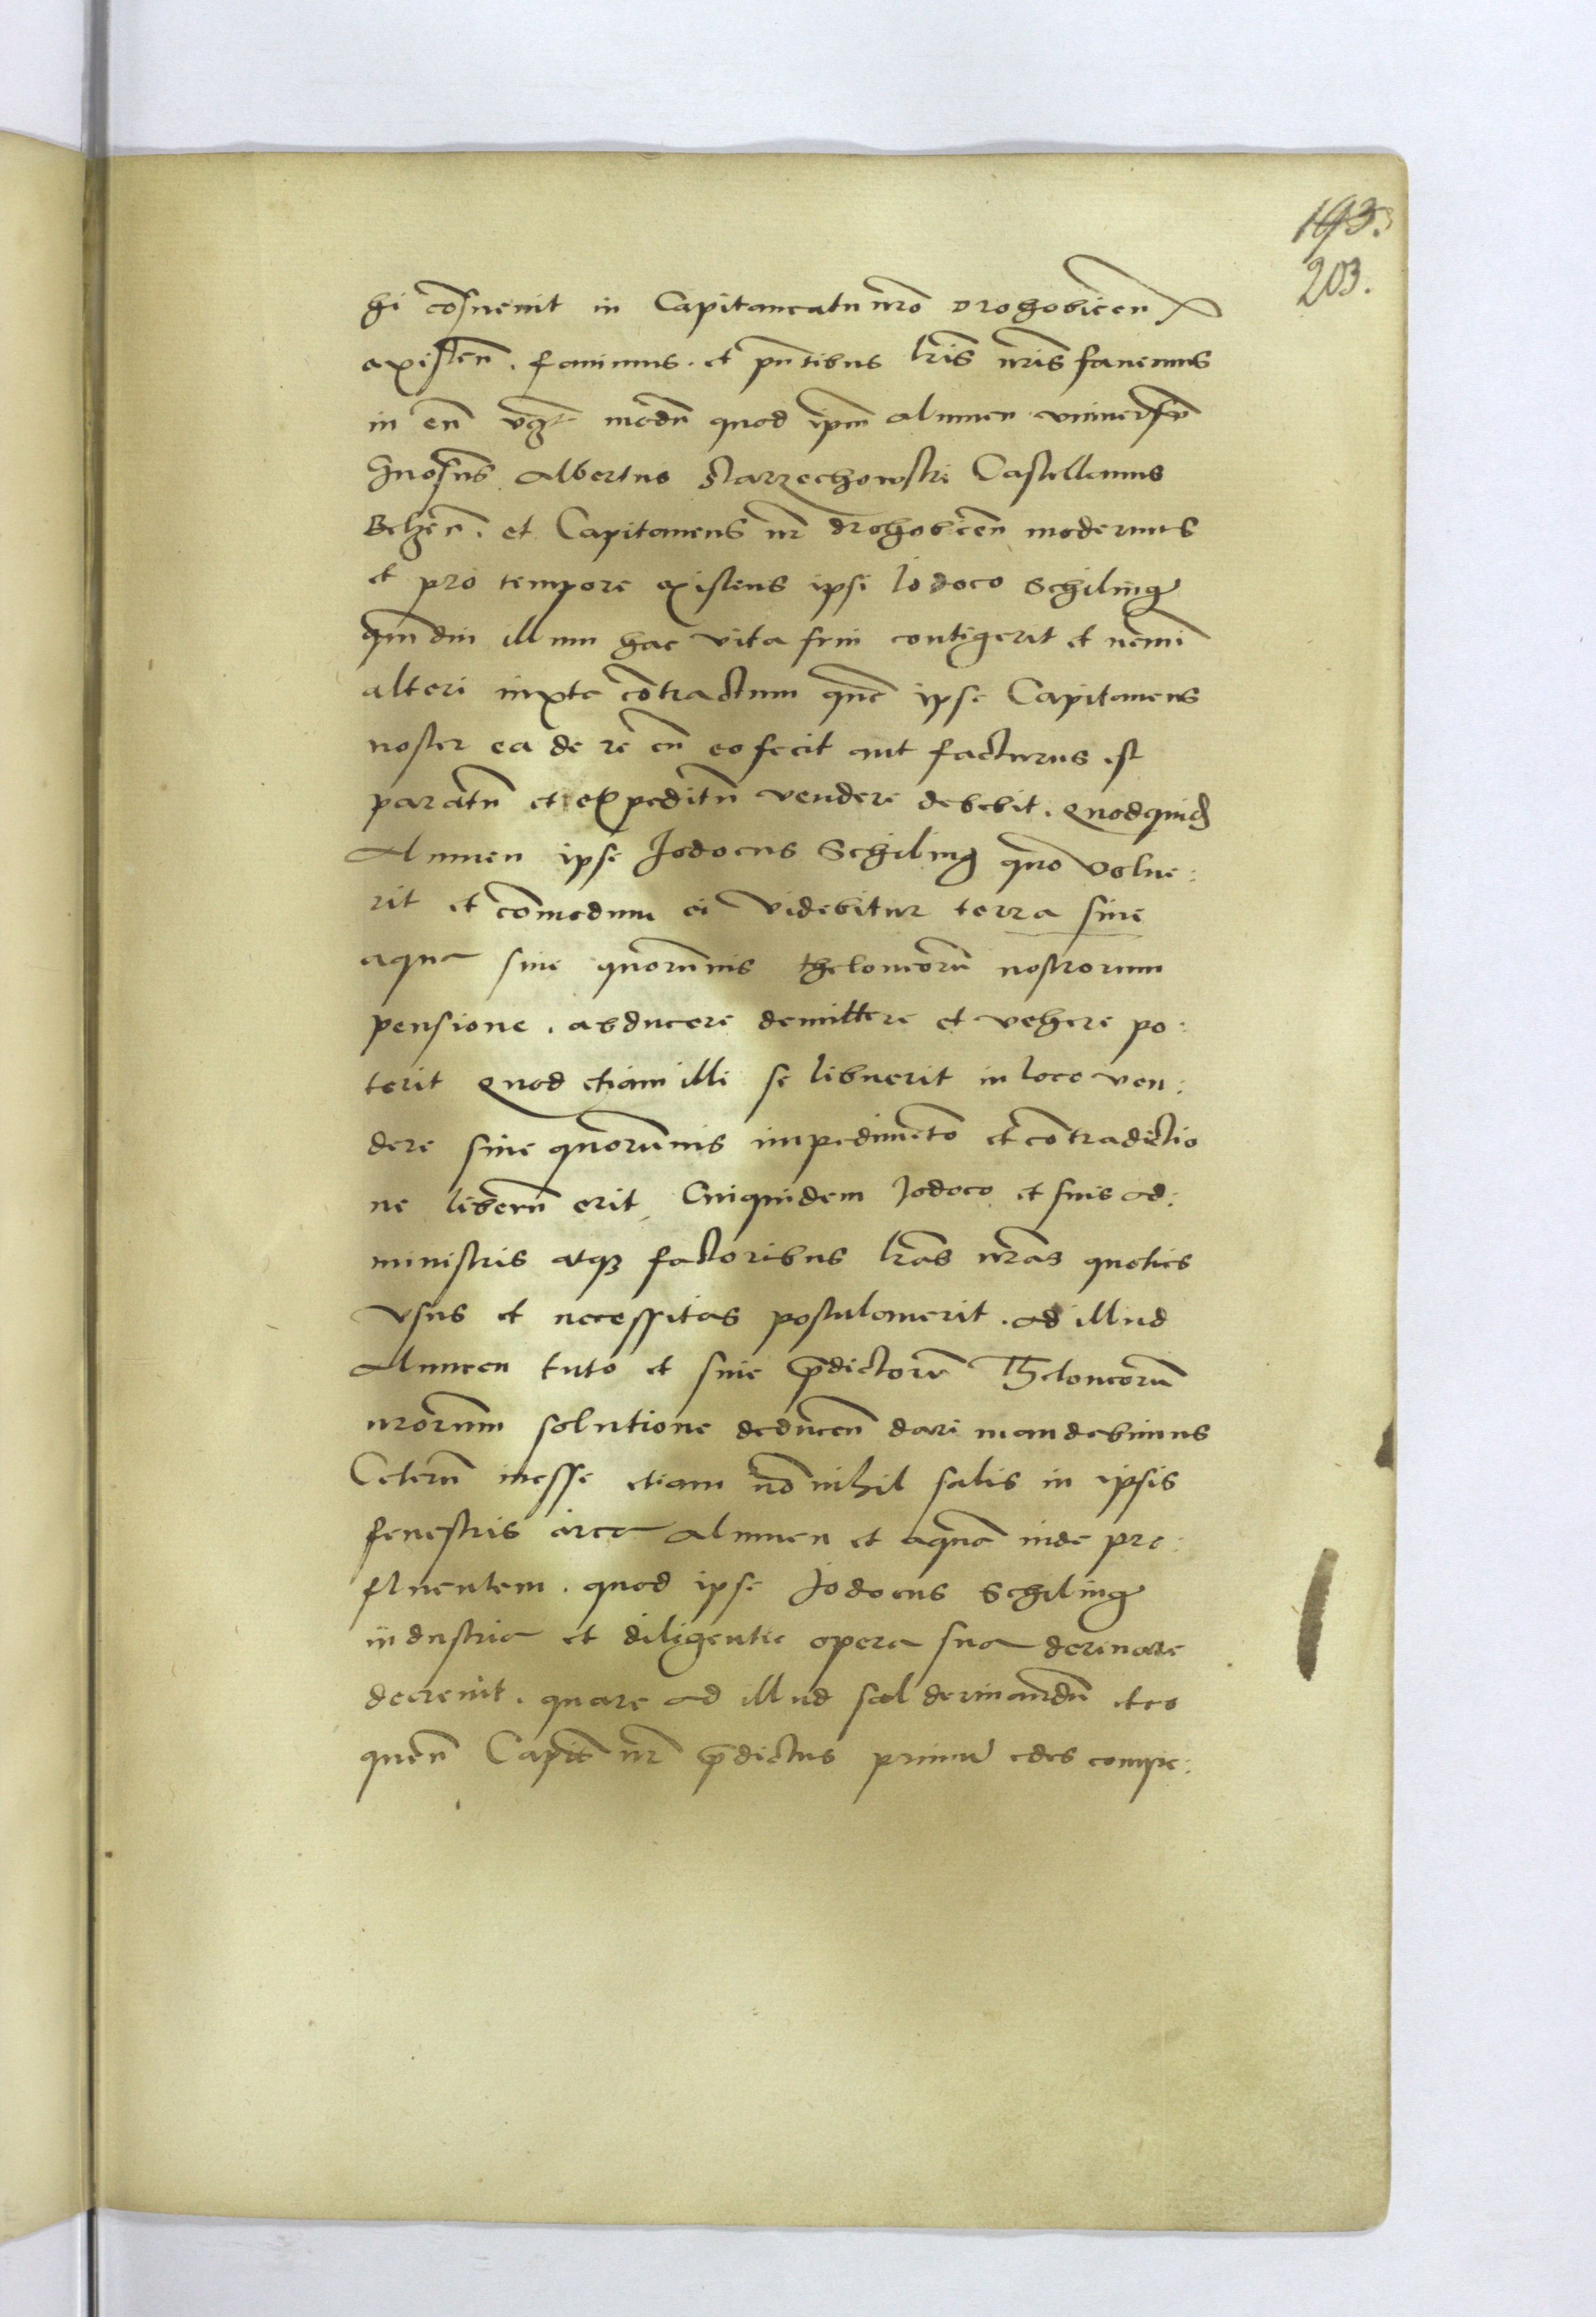 193.
203.
hi cōsuenit in Capitaneatu nr̄o Drohobicen̄
existen̄. fauimus. et pn̄tibus lr̄is nr̄is fauemus
in eū modū quod ip̄m Alumen vniuersū
Gn̄osus Albertus Starzechowski Castellanus
Belzen̄. et Capitaneus nr̄ drohobicen̄ modernus
et pro tempore existens ipsi Iodoco Schiling
q̄mdiu illum hac vita frui contigerit et nemī
alteri iuxta cōtractum quē ipse Capitaneus
noster ea de re cū eo fecit aut facturus est
paratū et expeditū vendere debebit. Quodquid
Alumen ipse Jodocus Schiling quo volue:
rit et cōmodum ei videbitur terra siue
aqua sine quorūuis theloneorū nostrorum
pensione. abducere demittere et vehere po:
terit Quod etiam illi se libuerit in loco ven:
dere sine quorūuis impedimēto et cōtradictio
ne liberū erit Cuiquidem Jodoco et suis ad:
ministris atqꝫ factoribus lr̄as nr̄as quoties
vsus et necessitas postulauerit. ad illud
Alumen tuto et sine p̄dictorū Theloneorū
nr̄orum solutione deducen̄ dari mandabimus
Ceterū inesse etiam nō nihil salis in ipsis
fenestris circa Alumen et aquā inde pro:
fluentem. quod ipse Jodocus Schiling
industria et diligentia opera sua deriuare
decreuit. quare ad illud sal deriuandū et co
quen̄ Capit̄ nr̄ p̄dictus primū edes compe: